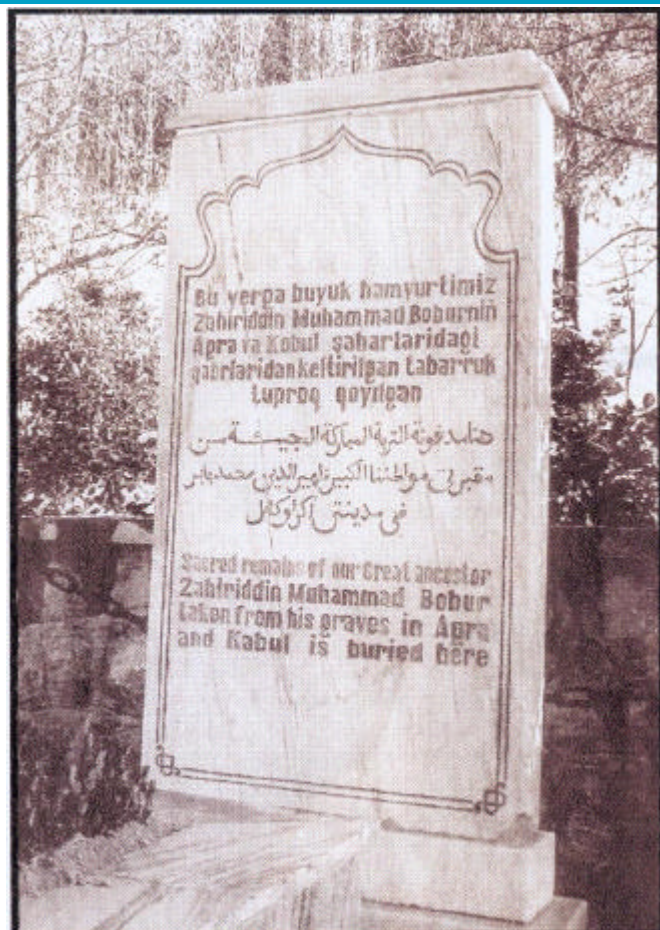 Bu yerga buyuk hamyurtimiz
Zahiriddin Muhammad Boburnin
Agra va Kobul şaharlaridagi
qabrlaridan keltirilgan tabarruk
tuproq qoyilgan
هنا مدفونة التربة المباركة المجيئة من
مقبرتي مواطننا الكبير ظهير الدين محمد بابر
في مدينتي اكره وكابل
Sacred remains of our Great ancestor
Zahiriddin Muhammad Bobur
taken from his graves in Agra
and Kabul is buried here